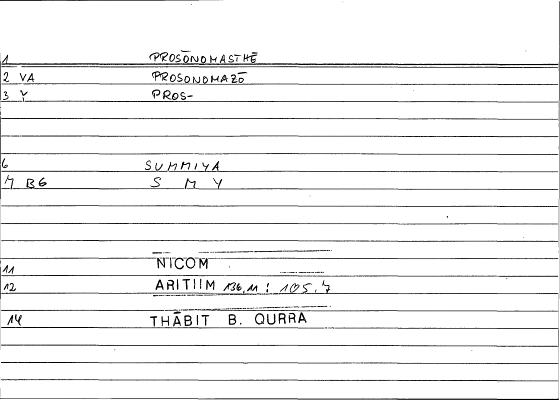 1 PROSŌNOMASTHĒ
2 VA PROSONOMAZŌ
3 Y PROS-
6 SUMMIYA
7 B6 S M Y
11 NICOM
12 ARITIIM 136,11 : 105.7
14 THĀBIT B. QURRA